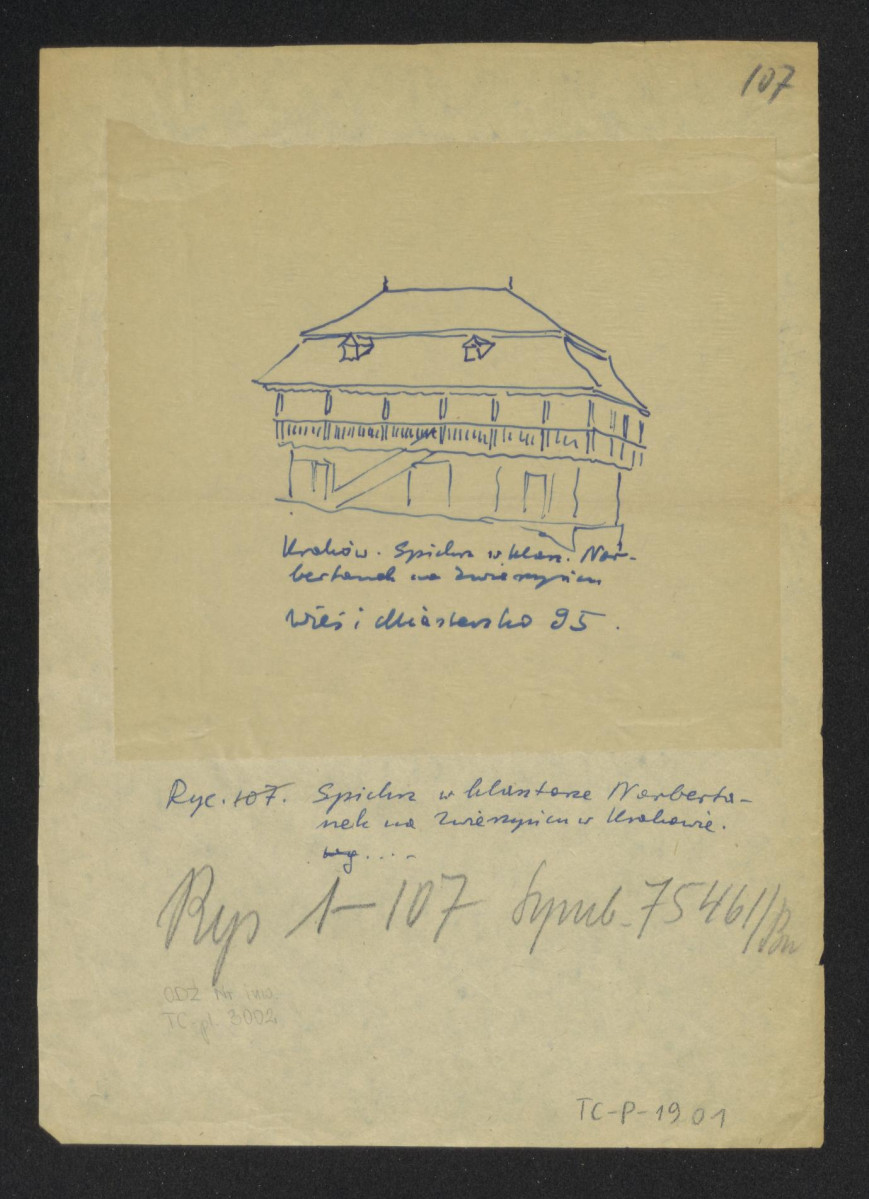 107
Kraków. Spichrz w klasz. Nor-
bertanek na Zwierzyńcu
Wieś i Miasteczko 95.
Ryc. 107. Spichrz w klasztorze Norberta-
nek na Zwierzyńcu w Krakowie.
wg....
Rys 1-107 Symb. 75461/
ODZ Nr inw.
TC-pl. 3002
TC-P-1901